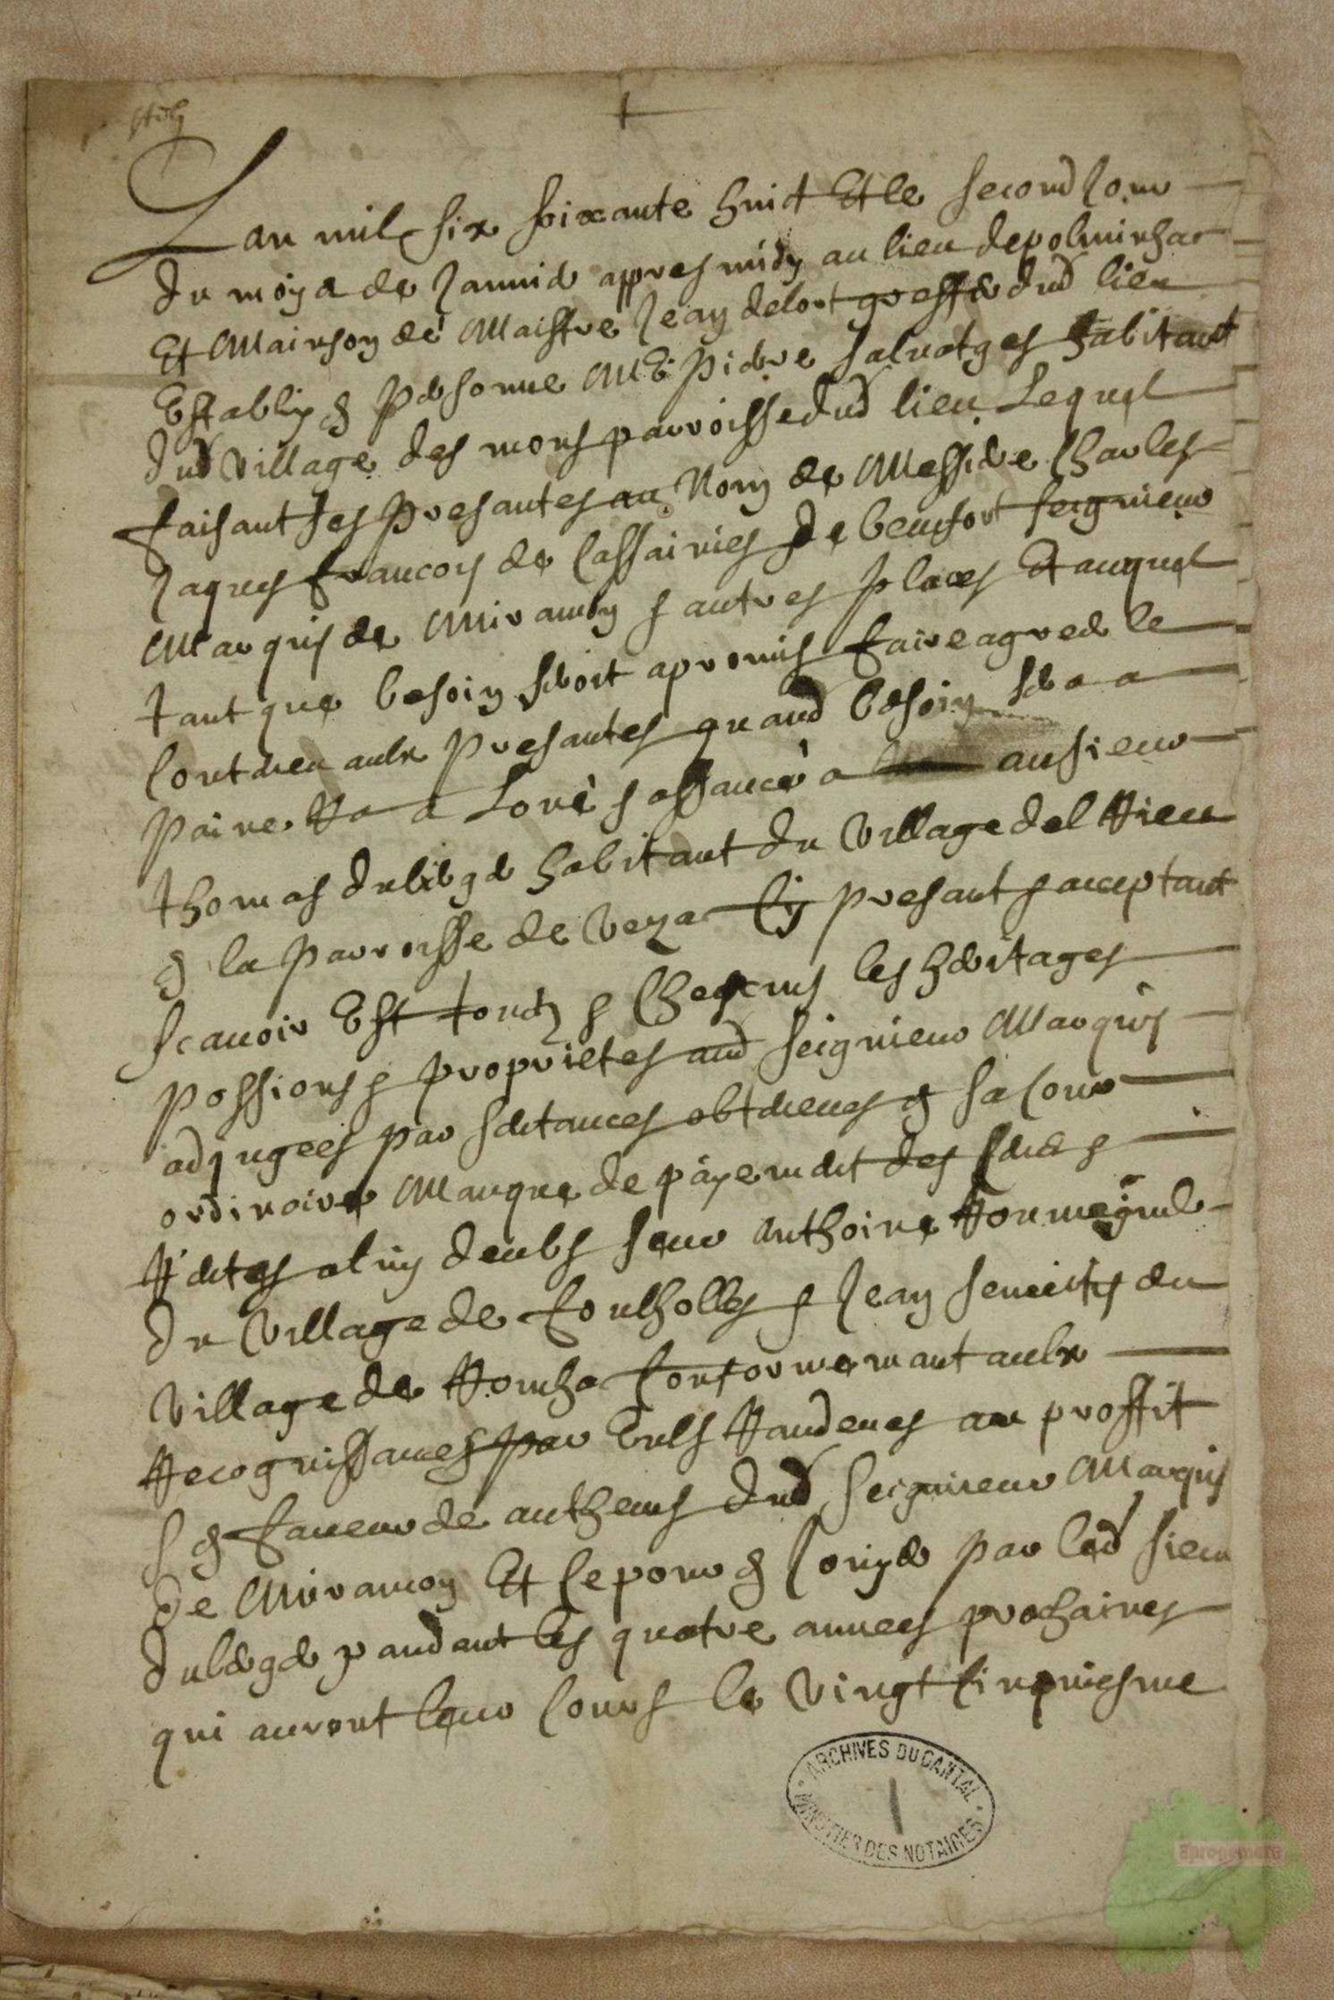 Lan mil six soixante huict et le second jour
du moys de janvier appres midy au lieu de polminhac
et mairson de maistre jean delort greffier dud lieu
establiy en personne me pierre salvatges habitant
dud village des mons parroisse dud lieu Lequel
faisant les presantes au nom de messire charles
jaques francois de cassaignes de beaufort seignieur
marquis de miramon & autres places et auquel
tant que besoing seroit a promis faire agreer le
contenu aulx presantes quand besoing sera a
paine &a a Loué & affancé a au sieur
thomas dubergé habitant du village del rieu
en la parroisse de veza icy presant & acceptant
scavoir est touts & chescuns les heritages
possions & proprietes aud seignieur marquis
adjugees par sentances obtenues en sa cour
ordinaire manque de payement des cens &
rentes a luy deubs sur anthoine
du village de foulholles & jean du
village de conformemant aulx
recognissances par eulx randeues au proffit
& en faveur de autheurs dud seignieur marquis
de miramon et ce pour en jouyr par led sieur
dubergé pandant les quatre annees prochaines
qui auront leur cours le vingt cinquiesme
ARCHIVES DU CANTAL
MINUTIER DES NOTAIRES